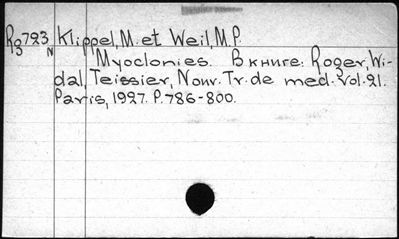 Rg 723 Klippel, M. et Weil, M.P.
N Myoclonies. В книге: Roger, Wi-
dal, Teissier, Nouv. Tr. de med. Vol. 21.
Paris, 1927. P. 786-800.